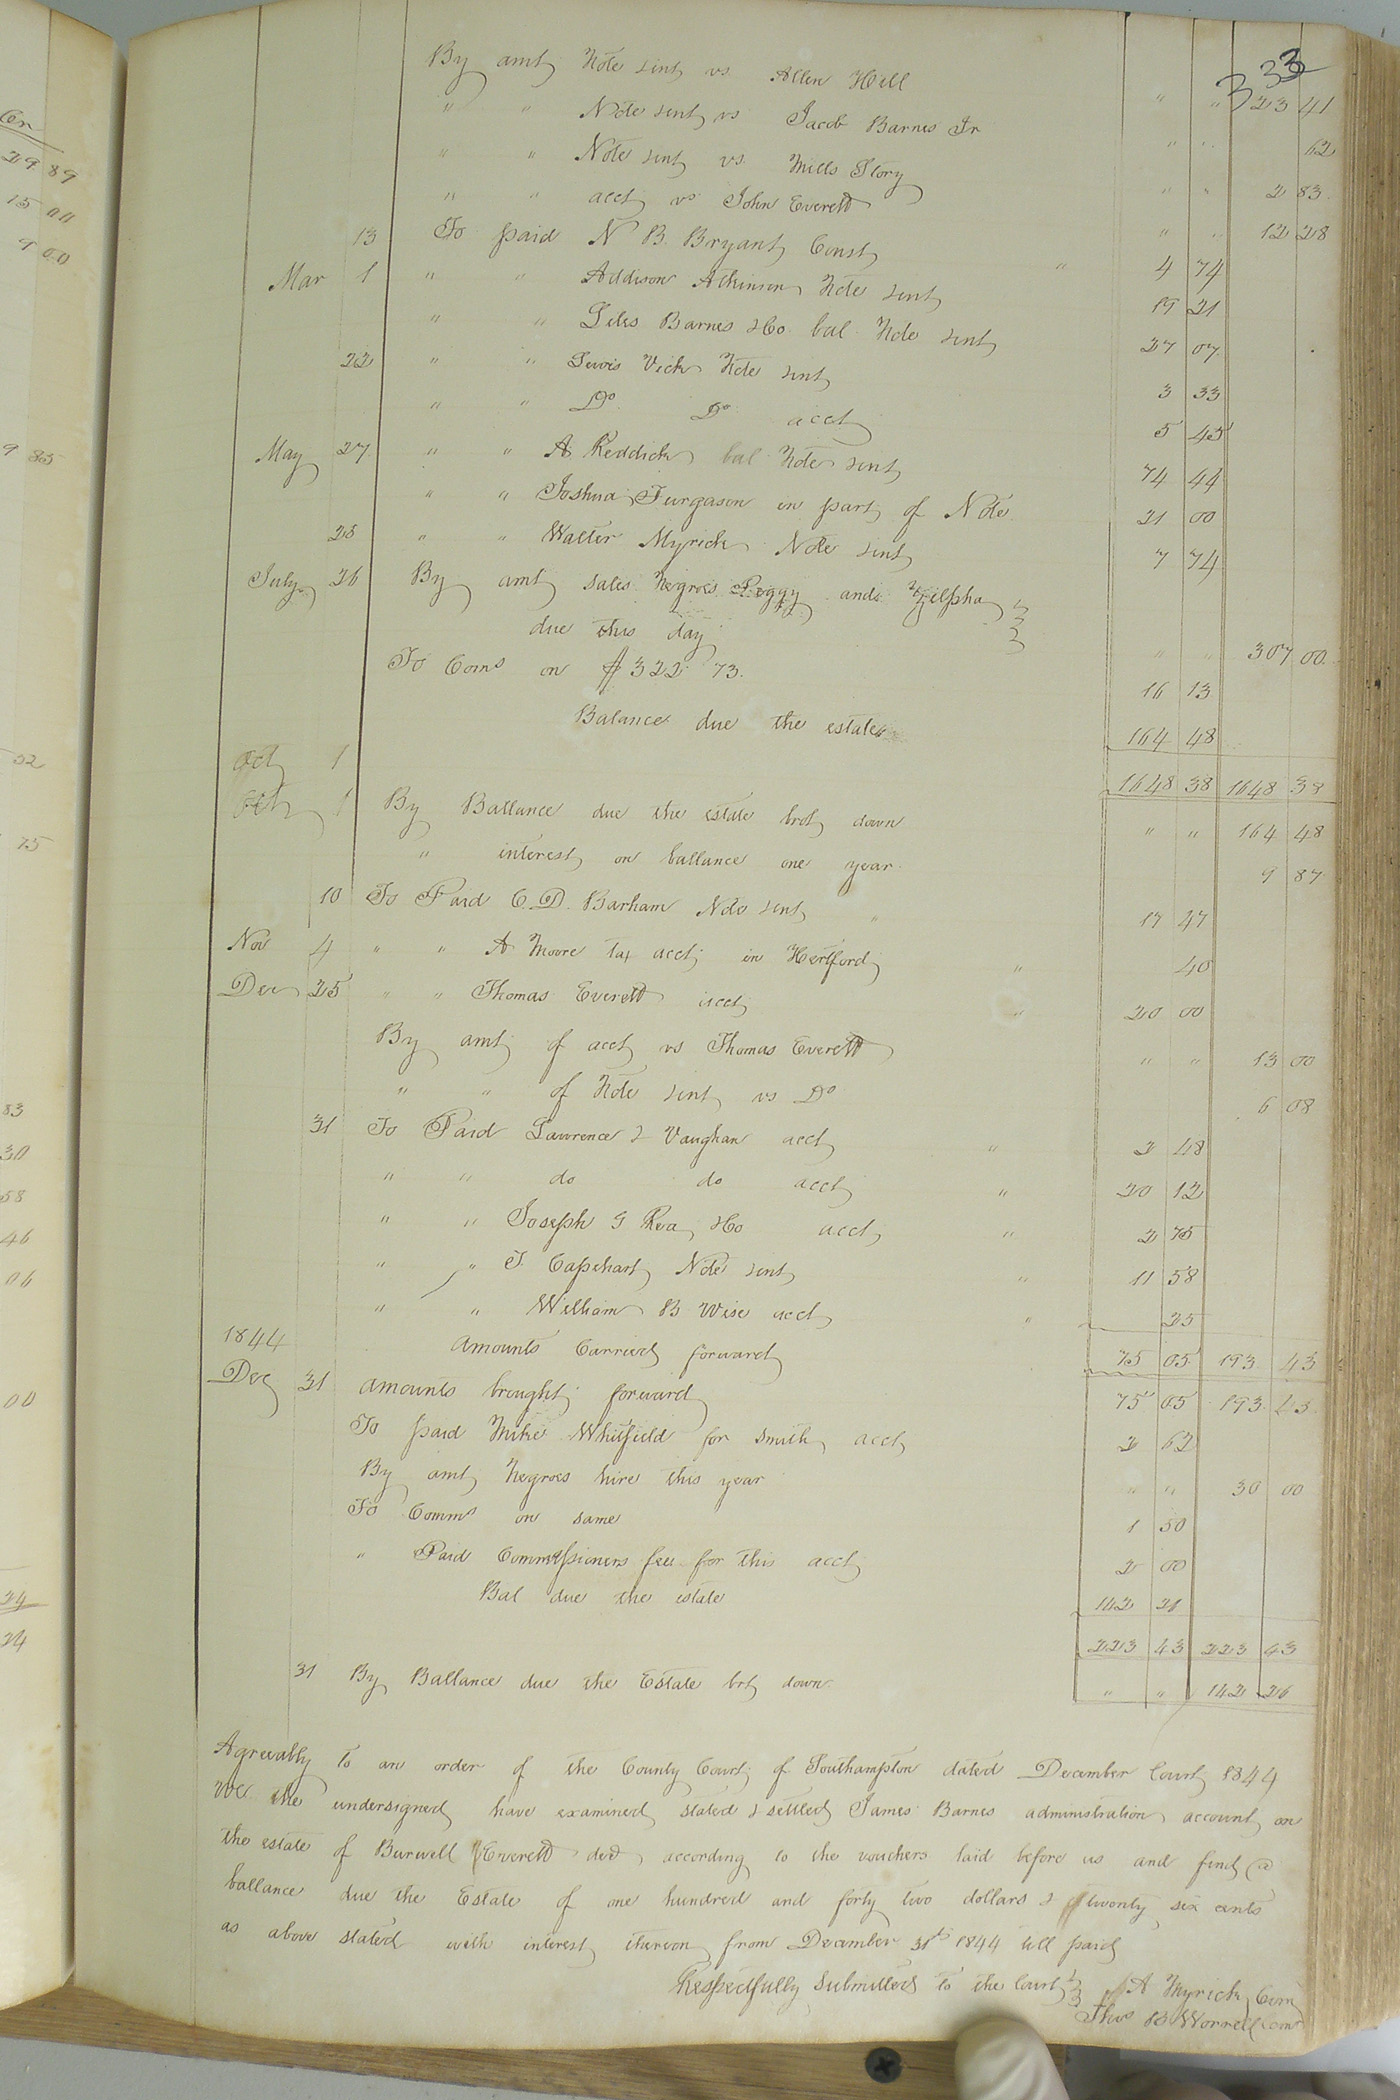 333
By amt Note & int vs Allen Hill " " 23 41
" " Note & int vs Jacob Barnes Jr " " 62
" " Note & int vs Mills Story " " 2 83
" " acct vs John Everett " " 12 28
13 To paid N B. Bryant Const " 4 74
Mar 1 " " Addison Atkinson Note & int 19 21
" " Giles Barnes & Co bal Note & int 27 07
22 " " Lewis Vick Note & int 3 33
" " Do Do acct 5 45
May 27 " " A Reddick bal Note & int 74 44
" " Joshua Furgason in part of Note 21 00
28 " " Walter Myrick Note & int 7 74
July 26 By amt sales Negroes Peggy and Zilpha
due this day " " 307 00
To Coms on $322 73. 16 13
Balance due the estate 164 48
Oct 1 1648 38 1648 38
1 By Ballance due the estate brot down " " 164 48
" interest on ballance one year 9 87
10 To Paid C. D. Barham Note & int " 17 47
Nov 4 " " A Moore tax acct in Hertford " 40
Dec 25 " " Thomas Everett acct " 20 00
By amt of acct vs Thomas Everett " " 13 00
" " of Note & int vs Do 6 08
31 To Paid Lawrence & Vaughan acct " 2 48
" " do do acct " 20 12
" " Joseph G Rea & Co acct " 2 75
" " T. Capehart Note & int " 11 58
" " William B Wise acct " 25
1844 Amounts Carried forward 75 05 193 43
Dec 31 Amounts brought forward 75 05 193 43
To paid Mike Whitfield for Smith acct 2 62
By amt Negroes hire this year " " 30 00
To Comms on same 1 50
" Paid Commissioners fee for this acct 2 00
Bal due the estate 142 26
223 43 223 43
31 By Ballance due the Estate brt down " " 142 26
Agreeably to an order of the County Court of Southampton dated December Court 1844
We the undersigned have examined stated & settled James Barnes administration account on
the estate of Burwell Everett decd according to the vouchers laid before us and find a
ballance due the Estate of one hundred and forty two dollars & twenty six cents
as above stated with interest thereon from December 31st 1844 till paid
Respectfully Submitted to the Court A Myrick Com
Thos B Worrell Com
Cr
29 89
15 00
9 00
9 85
52
75
83
30
58
46
06
00
24
24